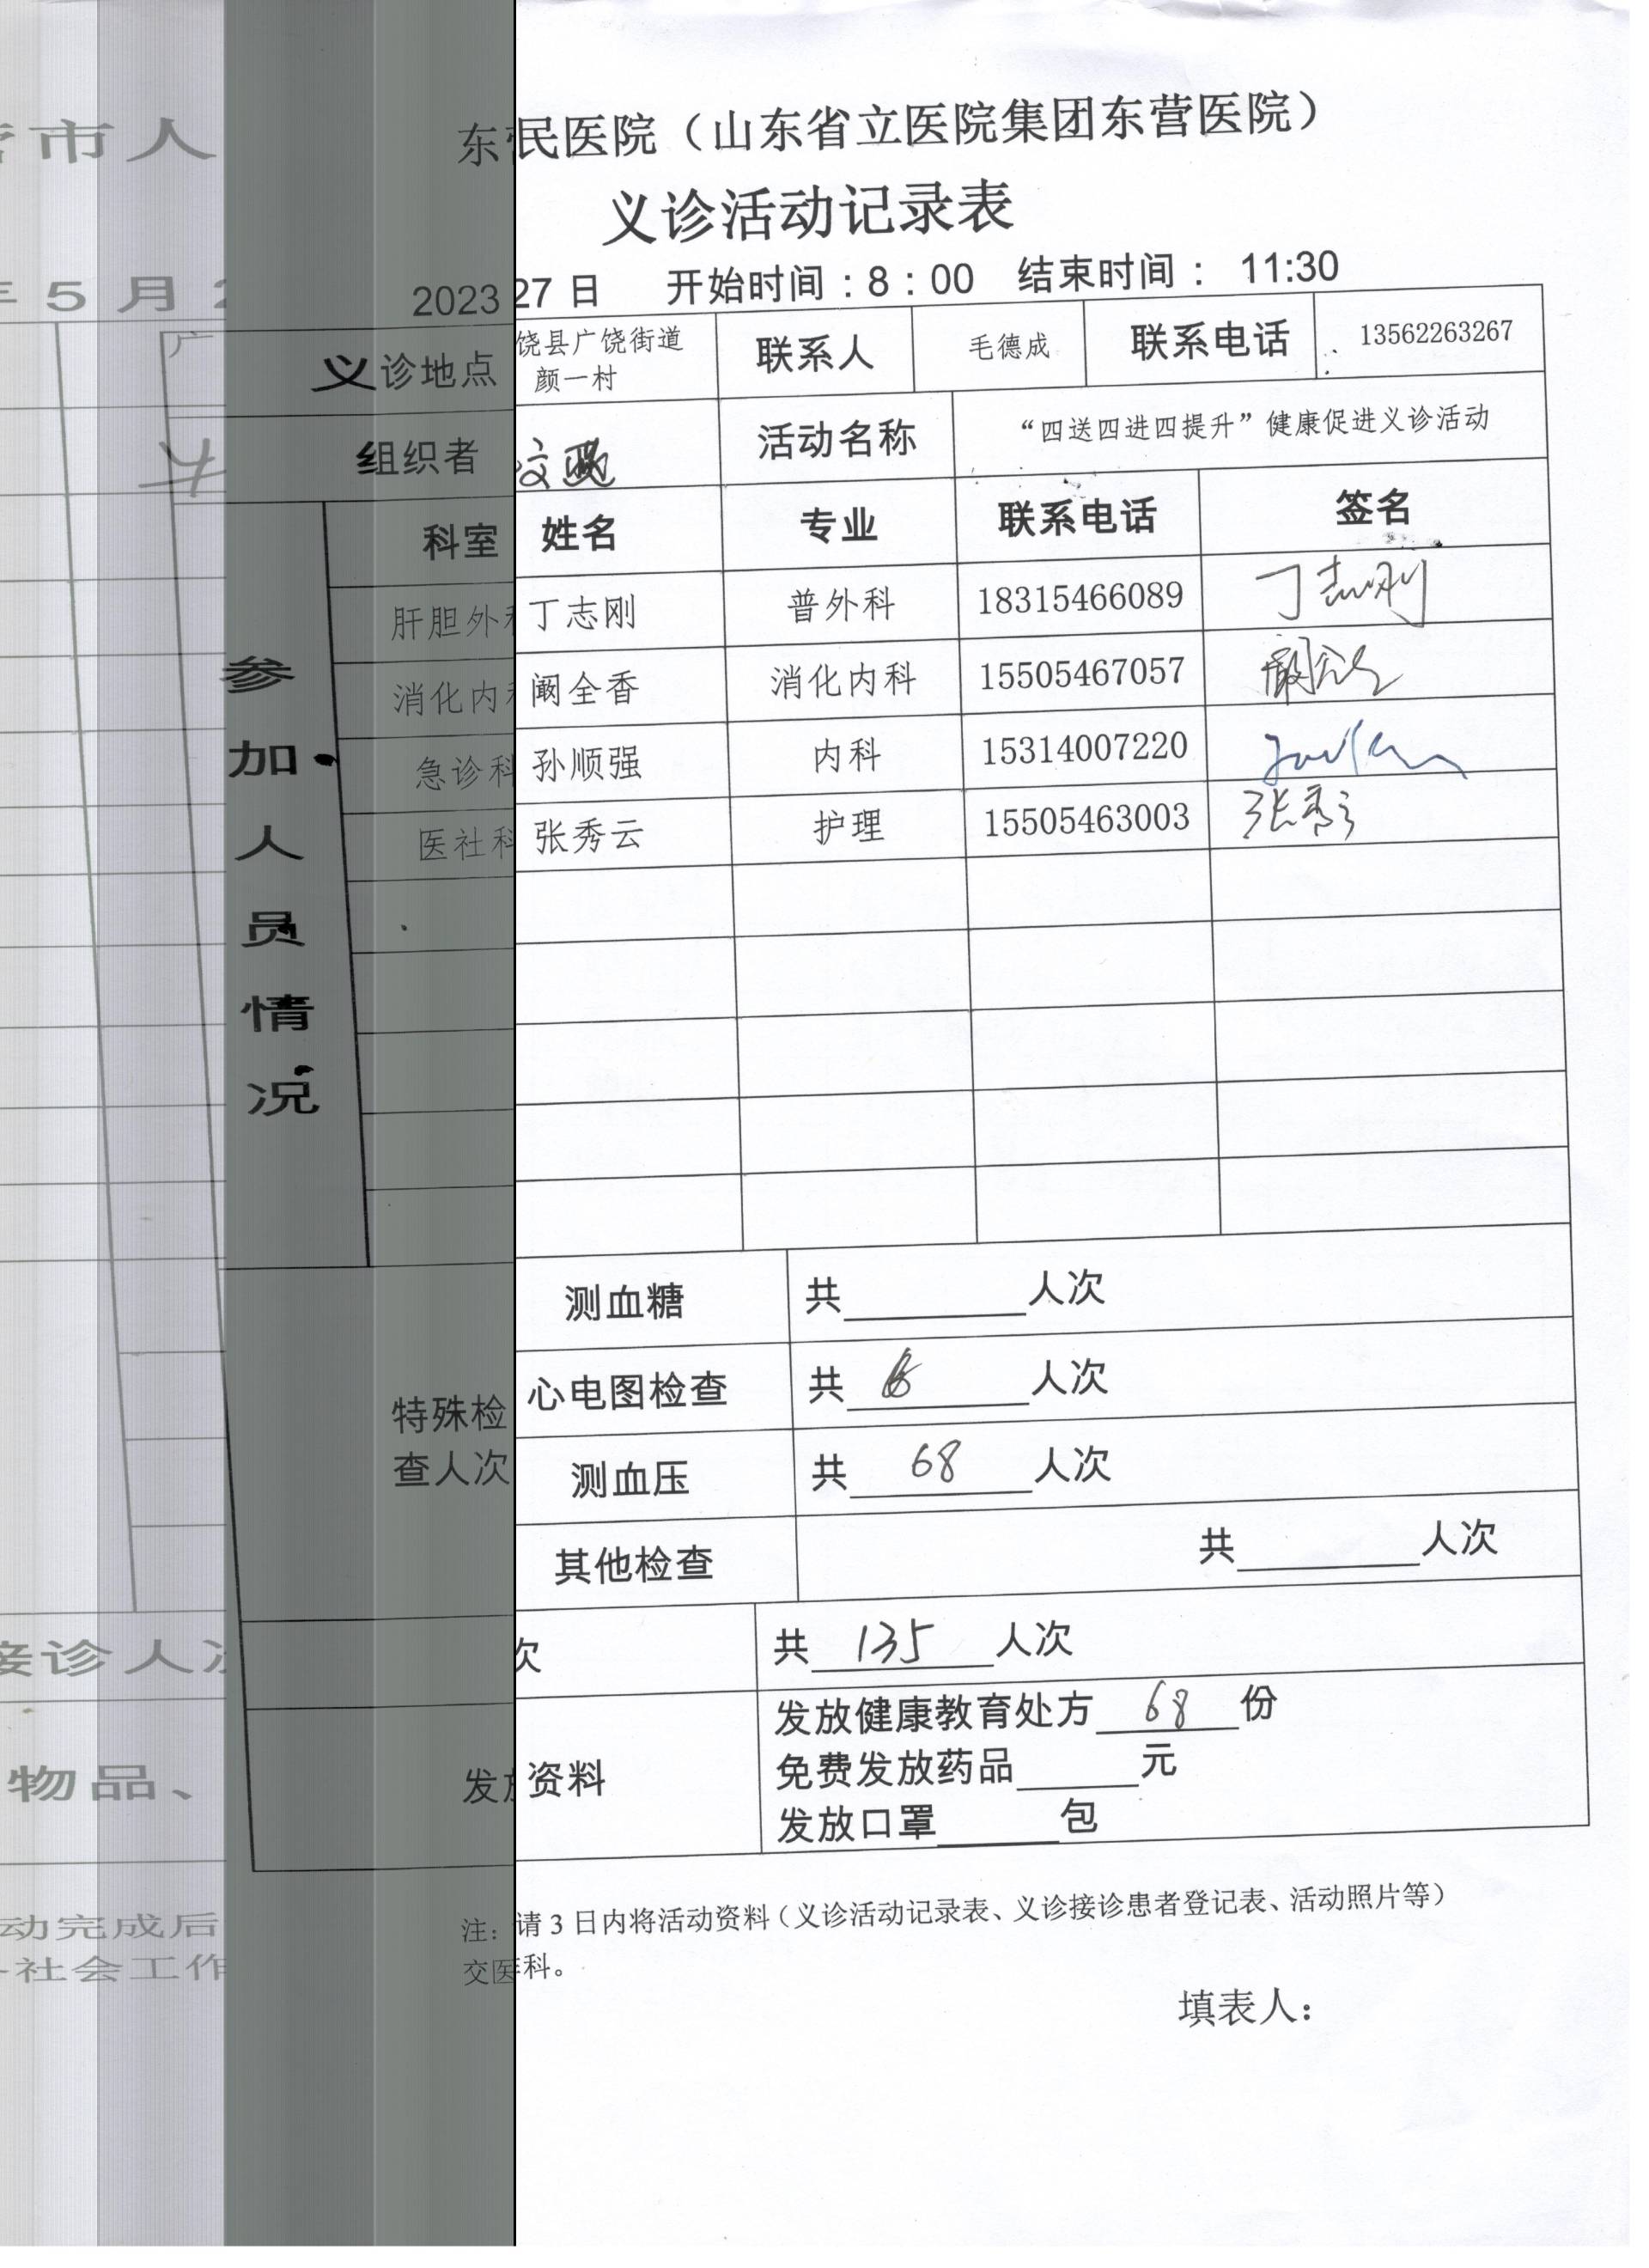 东营民医院（山东省立医院集团东营医院）
营市人
义诊活动记录表
2023 27 日 开始时间：8：00 结束时间： 11:30
年 5 月 2
义诊地点 饶县广饶街道 联系人 毛德成 联系电话 13562263267
广 颜一村
组织者 活动名称 “四送四进四提升”健康促进义诊活动
参加人员情况
科室 姓名 专业 联系电话 签名
肝胆外科 丁志刚 普外科 18315466089 丁志刚
消化内科 阚全香 消化内科 15505467057
急诊科 孙顺强 内科 15314007220
医社科 张秀云 护理 15505463003 张秀云
特殊检
查人次
测血糖 共 人次
心电图检查 共 人次
测血压 共 68 人次
其他检查 共 人次
接诊人次 次 共 135 人次
物品、 发放 资料
发放健康教育处方 68 份
免费发放药品 元
发放口罩 包
动完成后
注：请 3 日内将活动资料（义诊活动记录表、义诊接诊患者登记表、活动照片等）
社会工作
交医科。
填表人：